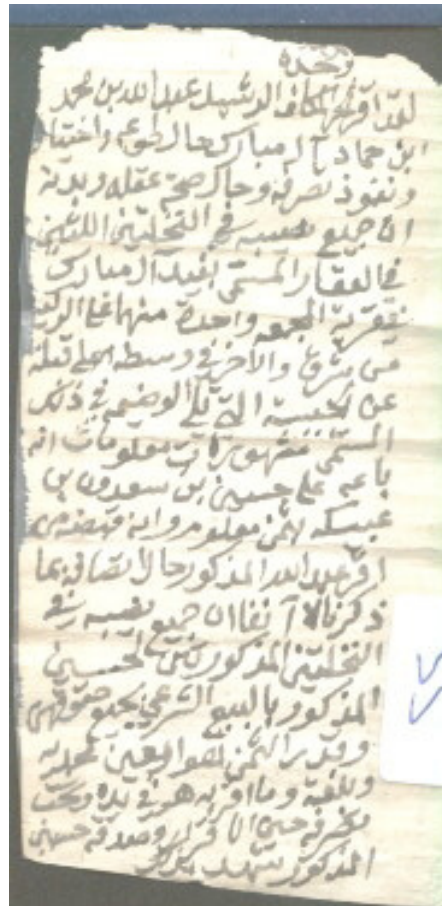 وحده
لقد اقر المكلف الرشيد عبد الله بن محمد
ابن حماد آل مبارك حال طوعه واختيا
ونفوذ تصرفه وحال صحة عقله وبدنه
ان جميع نصيبه في النخلتين اللتين
في العقار المسمى بغيد آل مبارك
في قرية الجمعه واحدة منها على الركيه
من شرق والاخرى في وسطه على قبلة
عن الجبيبة التي تلي الوضيمه في ذلك
المسمى مشهورات معلومات انه
باعه على حسين بن سعدون بن
عبيكه بثمن معلوم وانه قبضه من
اقر عبد الله المذكور حال اتصافه بما
ذكرناه آنفا ان جميع نصيبه في
النخلتين المذكورتين لحسين
المذكور بالبيع الشرعي بجميع حقوقهن
وقدر الثمن
وبلغه وما اقر به هو في يده وتحت
تصرفه حين الاقرار وصدقه حسين
المذكور شهد بذلك